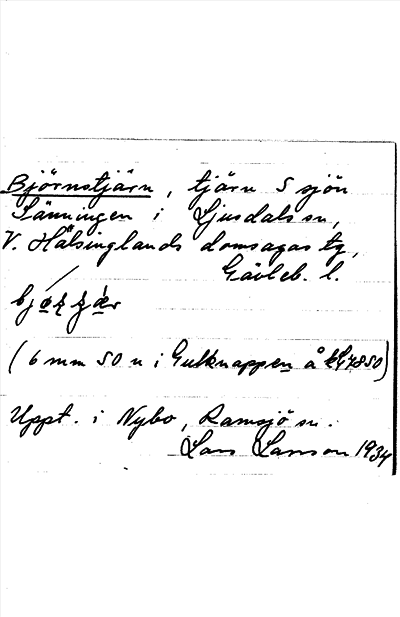 Björnstjärn, tjärn S sjön
Sänningen i Ljusdals sn,
V. Hälsinglands domsagas tg,
Gävleb. l.
(6 mm SO n i Gulknappen å kG7850)
Uppt. i Nybo, Ramsjö sn.
Lars Larsson 1934